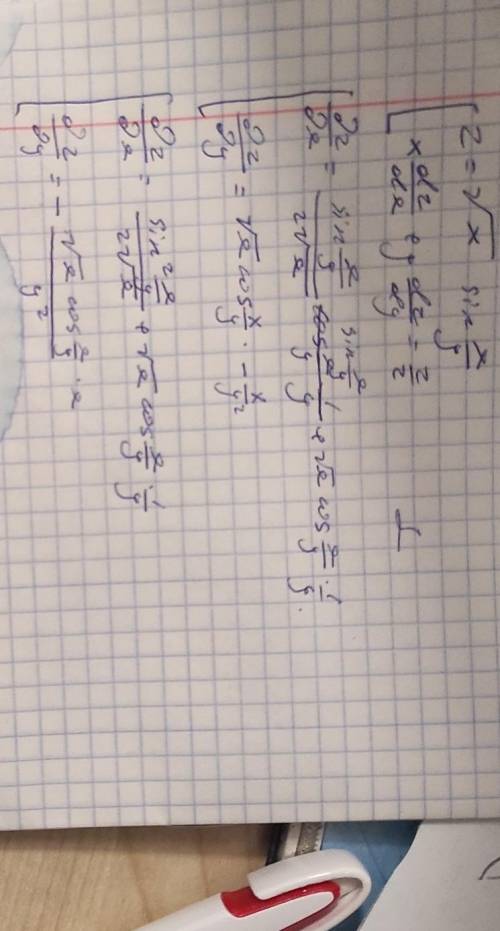 z = √x sin x/y
x dz/dx + y dz/dy = z/2
∂z/∂x = sin x/y / 2√x + √x cos x/y · 1/y
∂z/∂y = √x cos x/y · - x/y²
∂z/∂x = sin x/y / 2√x + √x cos x/y · 1/y
∂z/∂y = - √x cos x/y · x / y²